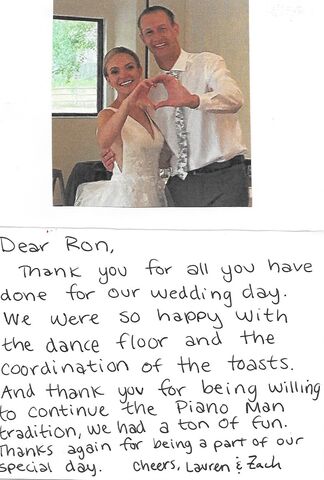 Dear Ron,
Thank you for all you have
done for our wedding day.
We were so happy with
the dance floor and the
coordination of the toasts.
And thank you for being willing
to continue the Piano Man
tradition, we had a ton of fun.
Thanks again for being a part of our
special day. Cheers, Lauren & Zach